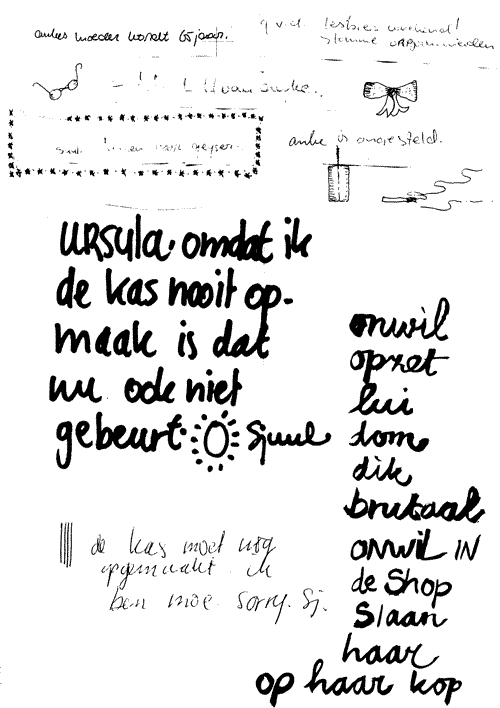 ankes moeder wordt 65 jaar.
q.v.d. lesbies weekend!
stomme organisatoren
anke is ongesteld.
URSULA. omdat ik
de kas nooit op-
maak is dat
nu ook niet
gebeurt. Sjuul
onwil
opzet
lui
dom
dik
brutaal
onwil IN
de Shop
Slaan
haar
op haar kop
de kas moet nog
opgemaakt. ik
ben moe. sorry. Sj.